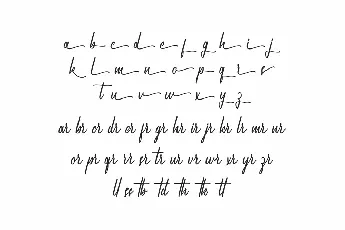 a b c d e f g h i j
k l m n o p q r s
t u v w x y z
ar br cr dr er fr gr hr ir jr kr lr mr nr
or pr qr rr sr tr ur vr wr xr yr zr
ll ss tb td th the tt